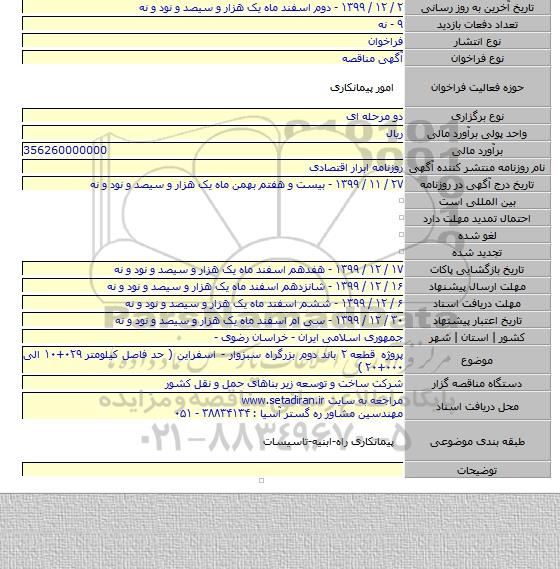 تاریخ آخرین به روز رسانی ۲ / ۱۲ / ۱۳۹۹ - دوم اسفند ماه یک هزار و سیصد و نود و نه
تعداد دفعات بازدید ۹ - نه
نوع انتشار فراخوان
نوع فراخوان آگهی مناقصه
حوزه فعالیت فراخوان امور پیمانکاری
نوع برگزاری دو مرحله ای
واحد پولی برآورد مالی ریال
برآورد مالی 356260000000
نام روزنامه منتشر کننده آگهی روزنامه ابرار اقتصادی
تاریخ درج آگهی در روزنامه ۲۷ / ۱۱ / ۱۳۹۹ - بیست و هفتم بهمن ماه یک هزار و سیصد و نود و نه
بین المللی است
احتمال تمدید مهلت دارد
لغو شده
تجدید شده
تاریخ بازگشایی پاکات ۱۷ / ۱۲ / ۱۳۹۹ - هفدهم اسفند ماه یک هزار و سیصد و نود و نه
مهلت ارسال پیشنهاد ۱۶ / ۱۲ / ۱۳۹۹ - شانزدهم اسفند ماه یک هزار و سیصد و نود و نه
مهلت دریافت اسناد ۶ / ۱۲ / ۱۳۹۹ - ششم اسفند ماه یک هزار و سیصد و نود و نه
تاریخ اعتبار پیشنهاد ۳۰ / ۱۲ / ۱۳۹۹ - سی ام اسفند ماه یک هزار و سیصد و نود و نه
کشور | استان | شهر جمهوری اسلامی ایران - خراسان رضوی -
موضوع پروژه قطعه ۲ باند دوم بزرگراه سبزوار - اسفراین ( حد فاصل کیلومتر ۰۲۹+۱۰ الی
۰۰۰+۲۰ )
دستگاه مناقصه گزار شرکت ساخت و توسعه زیر بناهای حمل و نقل کشور
محل دریافت اسناد مراجعه به سایت www.setadiran.ir
مهندسین مشاور ره گستر آسیا : ۳۸۸۳۴۱۳۴ - ۰۵۱
طبقه بندی موضوعی پیمانکاری راه-ابنیه-تاسیسات
توضیحات
پایگاه اطلاع رسانی مناقصه و مزایده
۰۲۱-۸۸۳۴۹۶۷۰-۵